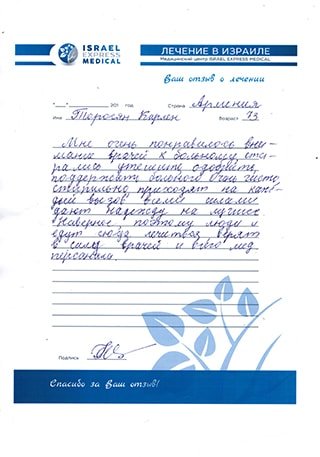 ISRAEL
EXPRESS
MEDICAL
ЛЕЧЕНИЕ В ИЗРАИЛЕ
Медицинский центр ISRAEL EXPRESS MEDICAL
Ваш отзыв о лечении
"__" ________ 201 год. Страна Армения
Имя Торосян Карлен Возраст 73
Мне очень понравилось вни-
мание врачей к больному, ста-
рались утешить, ободрить,
поддержать больного. Очень чисто,
приходят на каж-
дый вызов, всеми силами
дают надежду на лучшее
Наверное, поэтому люди и
едут сюда лечиться, верят
в силу врачей и всего мед.
персонала.
Подпись
Спасибо за Ваш отзыв!